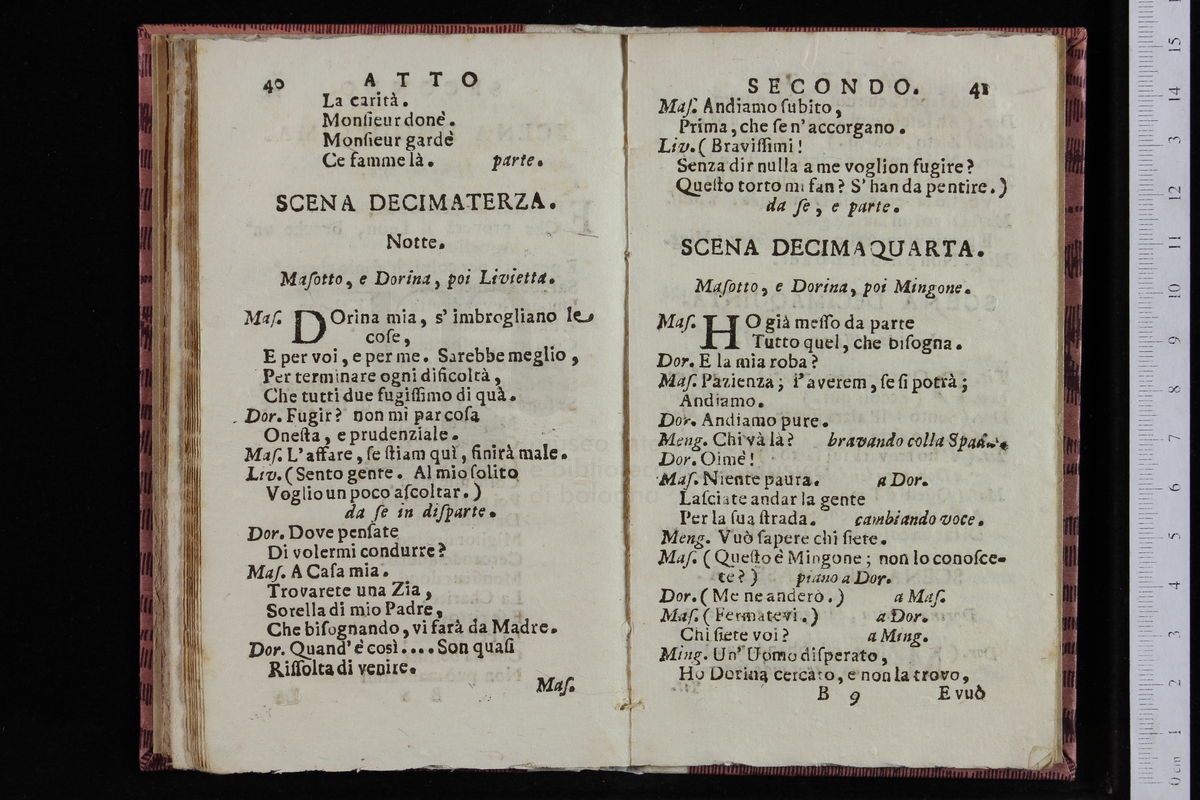 40 ATTO
La carità.
Monſieur donè.
Monſieur gardè
Ce famme là. parte.
SCENA DECIMATERZA.
Notte.
Maſotto, e Dorina, poi Livietta.
Maſ. DOrina mia, s'imbrogliano le
coſe,
E per voi, e per me. Sarebbe meglio,
Per terminare ogni dificoltà,
Che tutti due fugiſſimo di quà.
Dor. Fugir? non mi par coſa
Oneſta, e prudenziale.
Maſ. L'affare, ſe ſtiam quì, finirà male.
Liv. (Sento gente. Al mio ſolito
Voglio un poco aſcoltar.)
da ſe in diſparte.
Dor. Dove penſate
Di volermi condurre?
Maſ. A Caſa mia.
Trovarete una Zia,
Sorella di mio Padre,
Che biſognando, vi farà da Madre.
Dor. Quand'è così.... Son quaſi
Riſſolta di venire.
Maſ.
SECONDO. 41
Maſ. Andiamo ſubito,
Prima, che ſe n'accorgano.
Liv. (Braviſſimi!
Senza dir nulla a me voglion fugire?
Queſto torto mi fan? S'han da pentire.)
da ſe, e parte.
SCENA DECIMAQUARTA.
Maſotto, e Dorina, poi Mingone.
Maſ. HO già meſſo da parte
Tutto quel, che biſogna.
Dor. E la mia roba?
Maſ. Pazienza; l'averem, ſe ſi potrà;
Andiamo.
Dor. Andiamo pure.
Meng. Chi và là? bravando colla Spada.
Dor. Oimè!
Maſ. Niente paura. a Dor.
Laſciate andar la gente
Per la ſua ſtrada. cambiando voce.
Meng. Vuò ſapere chi ſiete.
Maſ. (Queſto è Mingone; non lo conoſce-
te?) piano a Dor.
Dor. (Me ne anderò.) a Maſ.
Maſ. (Fermatevi.) a Dor.
Chi ſiete voi? a Ming.
Ming. Un'Uomo diſperato,
Ho Dorina cercato, e non la trovo,
B 9 E vuò